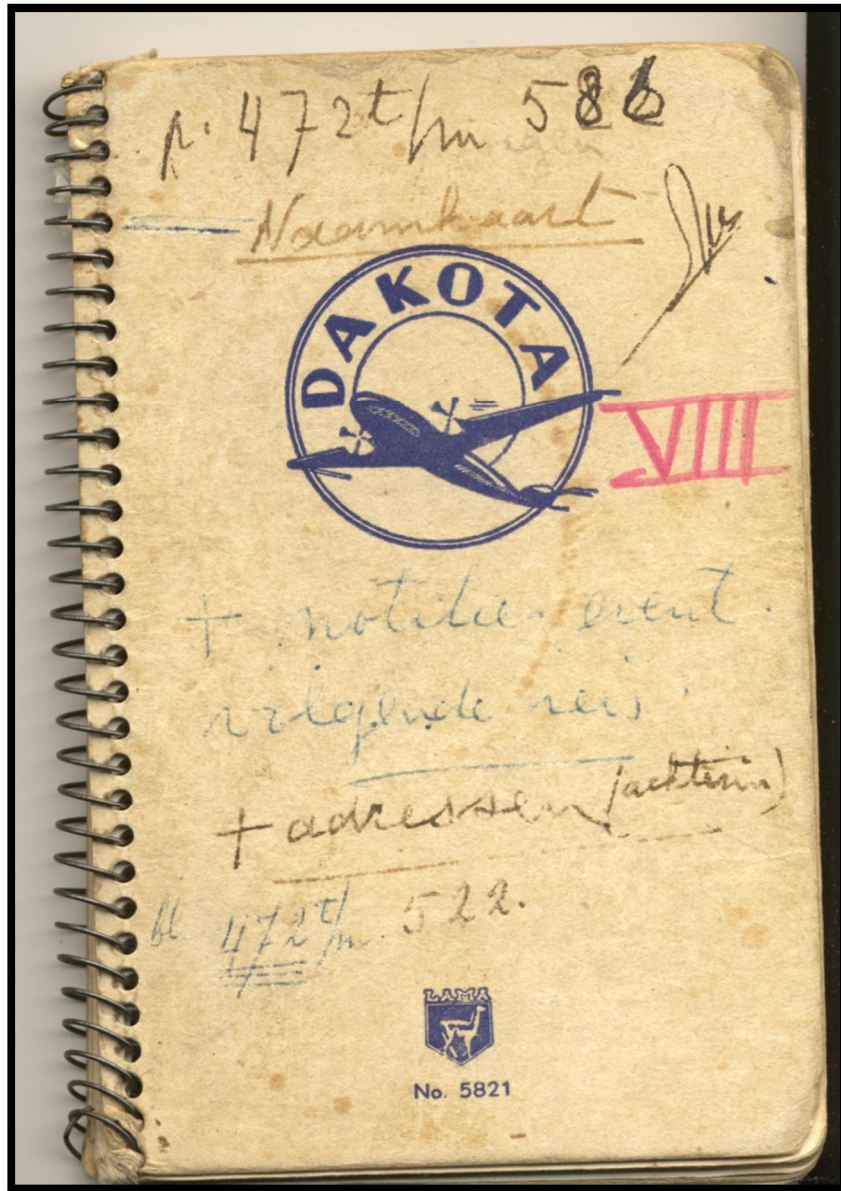 p. 472 t/m 586
Naamkaart
DAKOTA
VIII
+ notitie event.
volgende reis.
+ adressen (achterin)
bl. 472 t/m. 522.
LAMA
No. 5821